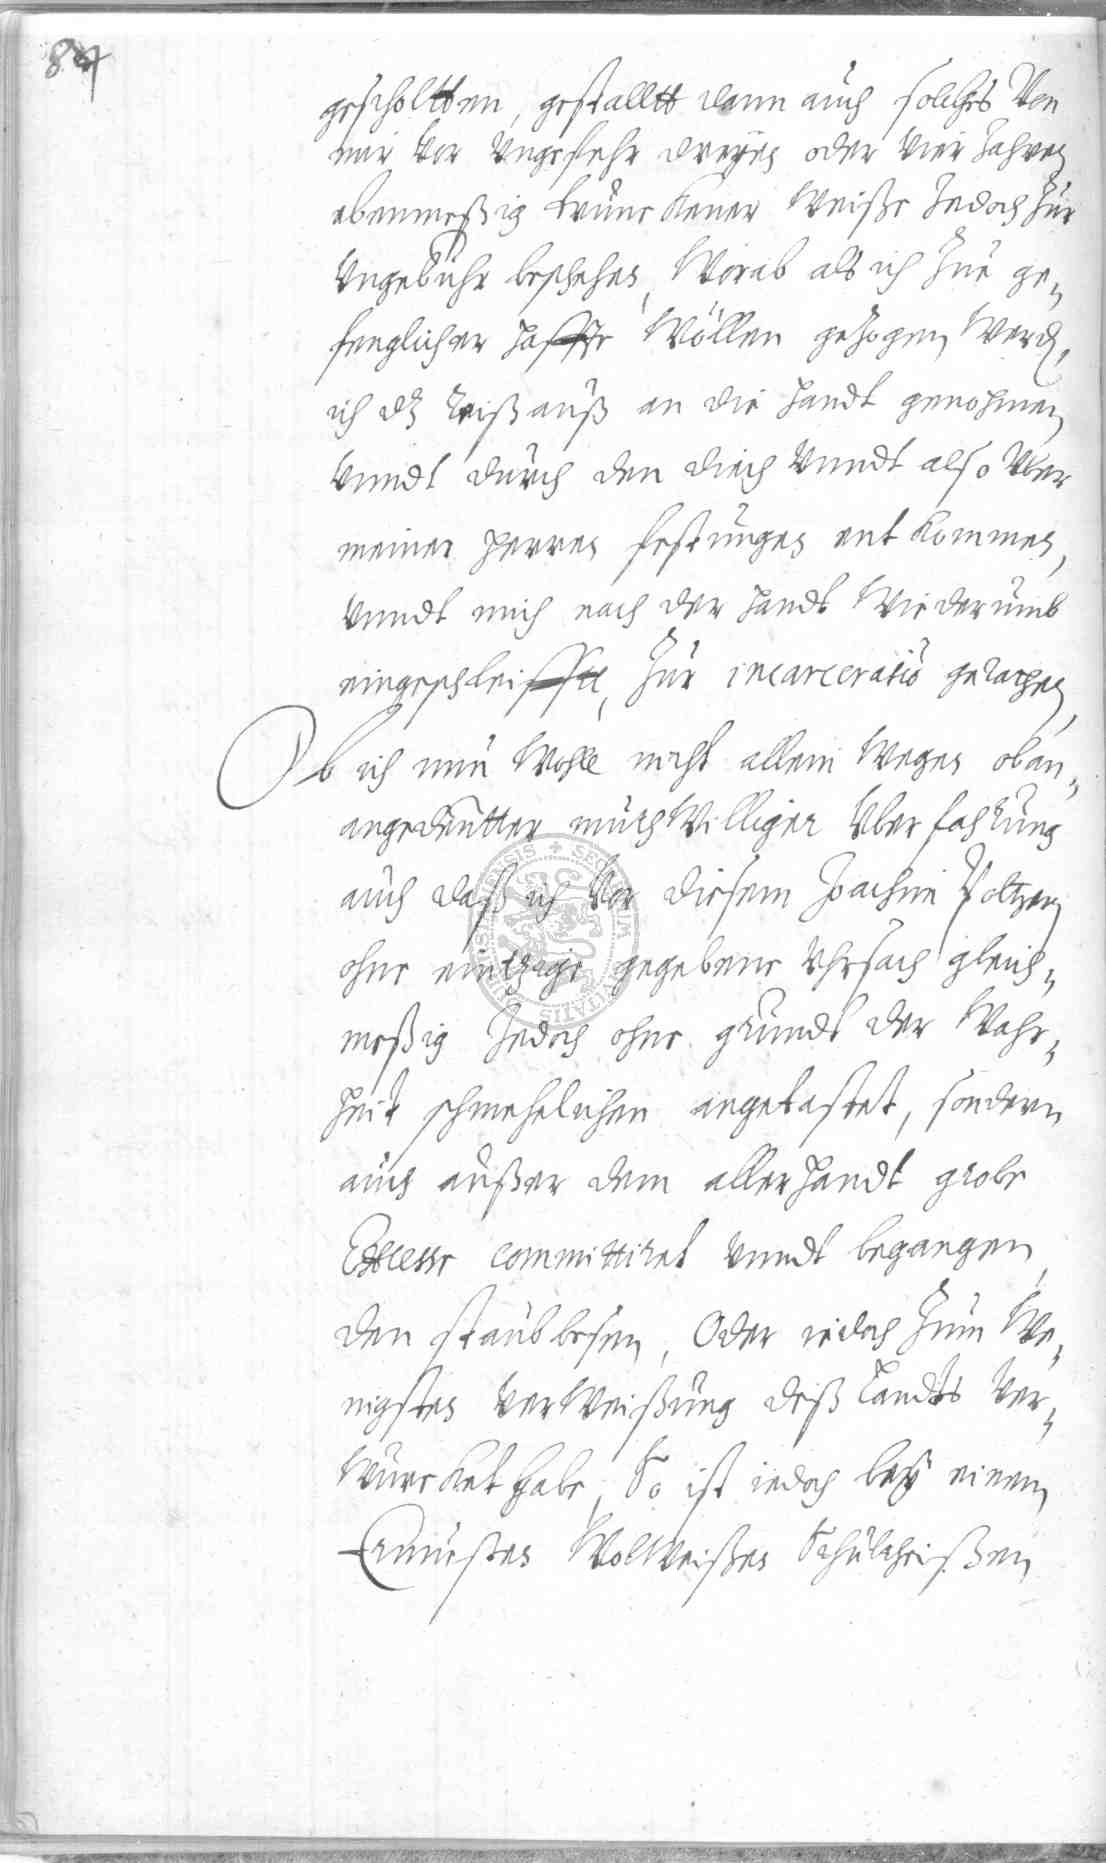 84
gescholtten, gestalltt dann auch solches Von
mir Vor Vngefehr dreyen oder Vier Jahren
ebenmeßig trunckener Weiße Jedoch Zur
Vngebuhr beschehen, Worab als ich Zue ge„
fenglicher Hafft Wöllen gezogen Werden,
ich dz reißauß an die Handt genohmen
Vnndt durch den diech Vnndt also Vber
meiner Herren festungen entkommen,
Vnndt mich nach der Handt Wiederumb
eingeschleifft, Zur incarceratio gerathen,
Ob ich nun Wohll nicht allein Wegen oban„
angedeutter muthWilliger Vberfahrung
auch daß ich Vor diesem Joachim
ohne eintzige gegebene Vhrsach gleich„
meßig Jedoch ohne grundt der Wahr„
heit schmehelichen angetastet, sondern
auch außer dem allerhandt grobe
Excesse committiret Vnndt begangen,
den staubbesen, Oder iedoch Zum We„
nigsten VerWeißung deß Landts Ver„
Wurcket habe, So ist iedoch bey einem
Ernuesten WolWeißen Schultheißen
SIGILLUM UNIVERSITATIS